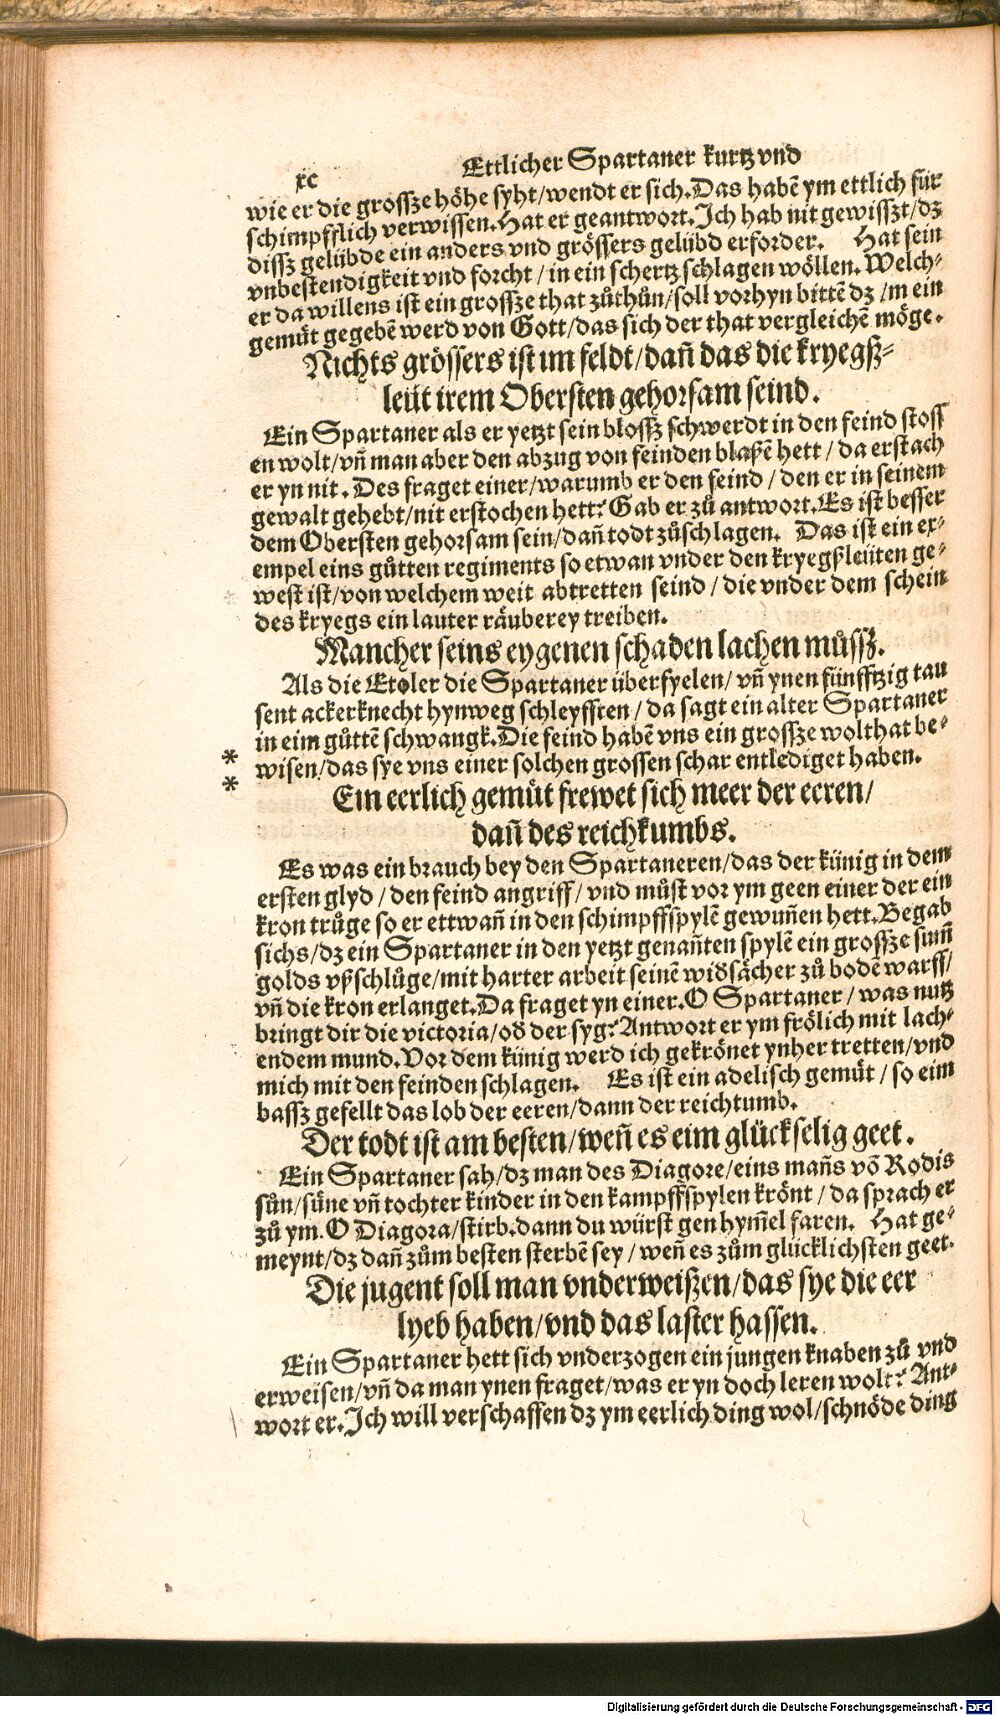 xc
Ettlicher Spartaner kurtz vnd
wie er die grossze höhe syht/wendt er sich.Das habẽ ym ettlich für
schimpfflich verwissen.Hat er geantwort.Ich hab nit gewisszt/dz
dissz gelübde ein anders vnd grössers gelübd erforder. Hat sein
vnbestendigkeit vnd forcht/in ein schertz schlagen wöllen.Welch⸗
er da willens ist ein grossze that zůthůn/soll vorhyn bittẽ dz /m ein
gemüt gegebẽ werd von Gott/das sich der that vergleichẽ möge.
Nichts grössers ist im feldt/dañ das die kryegß⸗
leüt irem Obersten gehorsam seind.
Ein Spartaner als er yetzt sein blossz schwerdt in den feind stoss
en wolt/vñ man aber den abzug von feinden blaßẽ hett/da erstach
er yn nit. Des fraget einer/warumb er den feind/den er in seinem
gewalt gehebt/nit erstochen hett? Gab er zů antwort.Es ist besser
dem Obersten gehorsam sein/dañ todt zůschlagen. Das ist ein ex⸗
empel eins gůtten regiments so etwan vnder den kryegßleüten ge⸗
west ist/von welchem weit abtretten seind/die vnder dem schein
des kryegs ein lauter räuberey treiben.
Mancher seins eygenen schaden lachen můssz.
Als die Etoler die Spartaner überfyelen/vñ ynen fünfftzig tau
sent ackerknecht hynweg schleyfften/da sagt ein alter Spartaner
in eim gůttẽ schwangk.Die feind habẽ vns ein grossze wolthat be⸗
* wisen/das sye vns einer solchen grossen schar entlediget haben.
* Ein eerlich gemüt frewet sich meer der eeren/
dañ des reichtumbs.
Es was ein brauch bey den Spartaneren/das der künig in dem
ersten glyd/den feind angriff/vnd můst vor ym geen einer der ein
kron trůge so er ettwañ in den schimpffspylẽ gewuñen hett.Begab
sichs/dz ein Spartaner in den yetzt genañten spylẽ ein grossze sum̃
golds vßschlůge/mit harter arbeit seinẽ widsächer zů bodẽ warff/
vñ die kron erlanget.Da fraget yn einer.O Spartaner/was nutz
bringt dir die victoria/od der syg? Antwort er ym frölich mit lach⸗
endem mund.Vor dem künig werd ich gekrönet ynher tretten/vnd
mich mit den feinden schlagen. Es ist ein adelisch gemüt/so eim
bassz gefellt das lob der eeren/dann der reichtumb.
Der todt ist am besten/weñ es eim glückselig geet.
Ein Spartaner sah/dz man des Diagore/eins mañs võ Rodis
sůn/süne vñ tochter kinder in den kampffspylen krönt/da sprach er
zů ym.O Diagora/stirb.dann du würst gen hym̃el faren. Hat ge⸗
meynt/dz dañ zům besten sterbẽ sey/weñ es zům glücklichsten geet.
Die jugent soll man vnderweißen/das sye die eer
lyeb haben/vnd das laster hassen.
Ein Spartaner hett sich vnderzogen ein jungen knaben zů vnd
erweisen/vñ da man ynen fraget/was er yn doch leren wolt? Ant⸗
wort er.Ich will verschaffen dz ym eerlich ding wol/schnöde ding
Digitalisierung gefördert durch die Deutsche Forschungsgemeinschaft - DFG